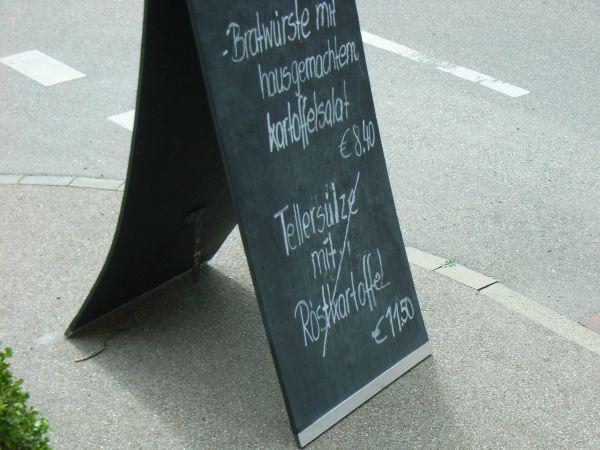 - Bratwürste mit
hausgemachtem
kartoffelsalat
€ 8.40
Tellersülze
mit
Röstkartoffel
€ 11.50